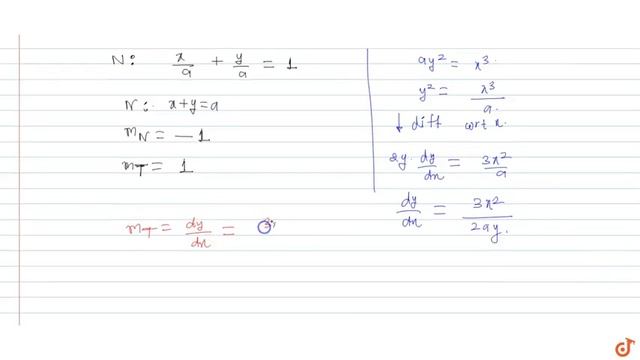 N: x/a + y/a = 1
N: x+y=a
mN = -1
mT = 1
mT = dy/dx = 3
ay² = x³.
y² = x³/a.
↓ diff wrt x.
2y. dy/dx = 3x²/a
dy/dx = 3x²/2ay.